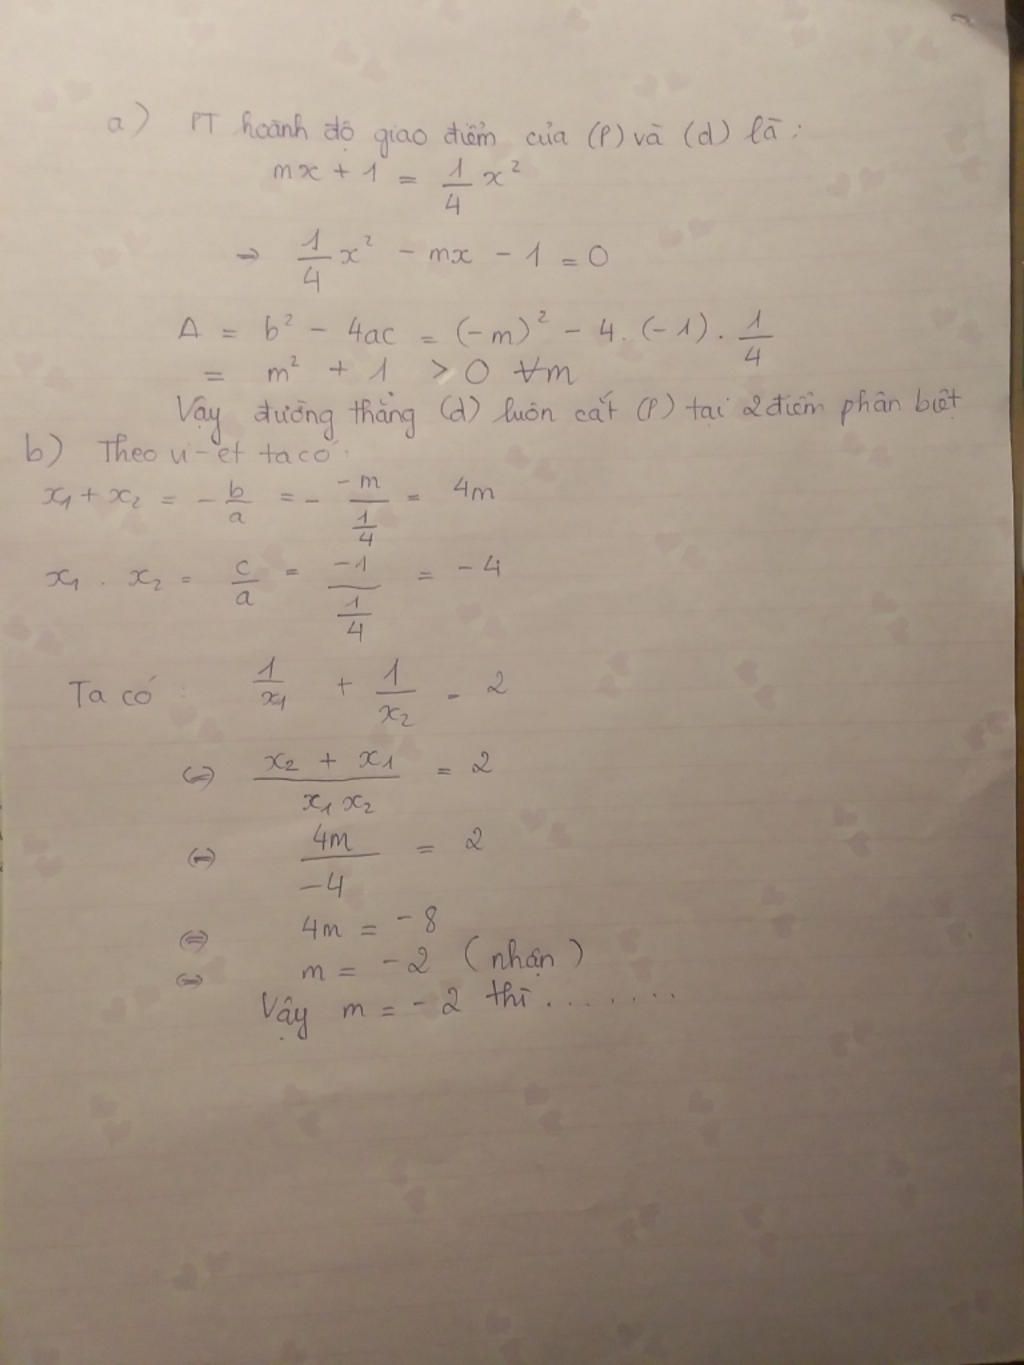 a) PT hoành độ giao điểm của (P) và (d) là :
mx + 1 = 1/4 x²
⇒ 1/4 x² - mx - 1 = 0
Δ = b² - 4ac = (-m)² - 4 . (-1) . 1/4
= m² + 1 > 0 ∀m
Vậy đường thẳng (d) luôn cắt (P) tại 2 điểm phân biệt
b) Theo vi-et ta có :
x₁ + x₂ = - b/a = - (-m)/(1/4) = 4m
x₁ . x₂ = c/a = (-1)/(1/4) = -4
Ta có : 1/x₁ + 1/x₂ = 2
⇔ (x₂ + x₁)/(x₁ x₂) = 2
⇔ 4m/-4 = 2
⇔ 4m = -8
⇔ m = -2 (nhận)
Vậy m = -2 thì .......